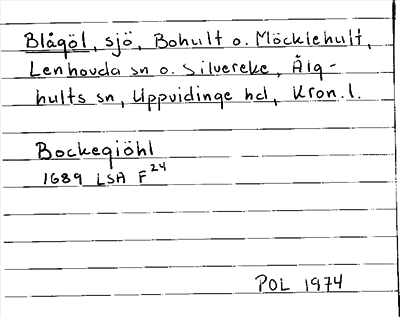 Blågöl, sjö, Bohult o. Möcklehult,
Lenhovda sn o. Silvereke, Älg-
hults sn, Uppvidinge hd, Kron. l.
Bockegiöhl
1689 LSA F24
POL 1974